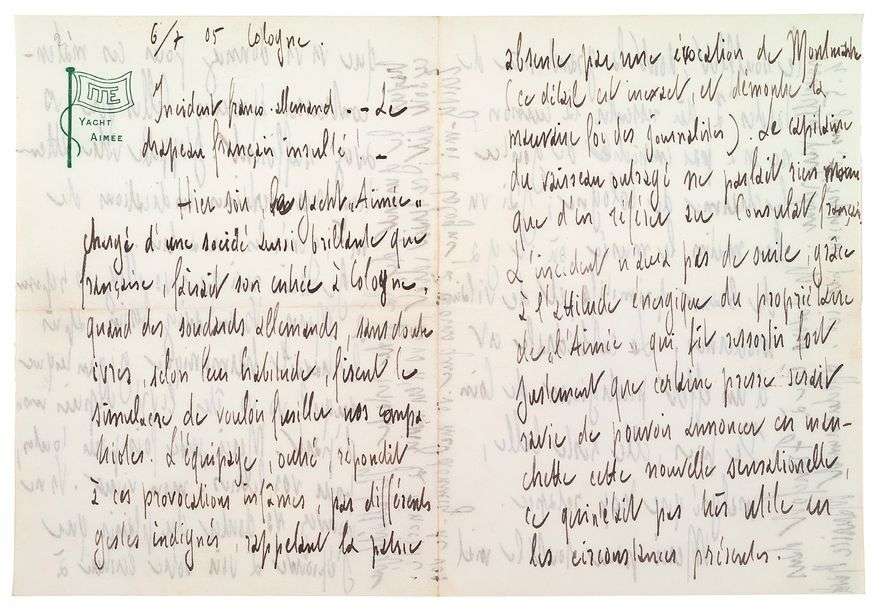 6/7 05 Cologne.
ITE
YACHT
AIMÉE
Incident franco-allemand. - Le
drapeau français insulté ! -
Hier soir, le yacht "Aimée"
chargé d'une société aussi brillante que
française, faisait son entrée à Cologne,
quand des soudards allemands, sans doute
ivres, selon leur habitude, firent le
simulacre de vouloir fusiller nos compa
triotes. L'équipage, outré, répondit
à ces provocations infâmes, par différents
gestes indignés, rappelant la patrie
absente par une évocation de Montmartre
(ce détail est inexact et démontre la
mauvaise foi des journalistes). Le capitaine
du vaisseau outragé ne parlait rien moins
que d'en référer au Consulat français.
L'incident n'aura pas de suite, grâce
à l'attitude énergique du propriétaire
de l'"Aimée" qui fit ressortir fort
justement que certaine presse serait
ravie de pouvoir annoncer en man-
chette cette nouvelle sensationnelle,
ce qui n'était pas très utile en
les circonstances présentes.